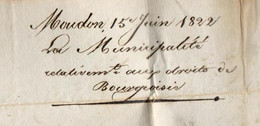 Moudon, 15e Juin 1822
La Municipalité
relativemt. aux droits de
Bourgeoisie